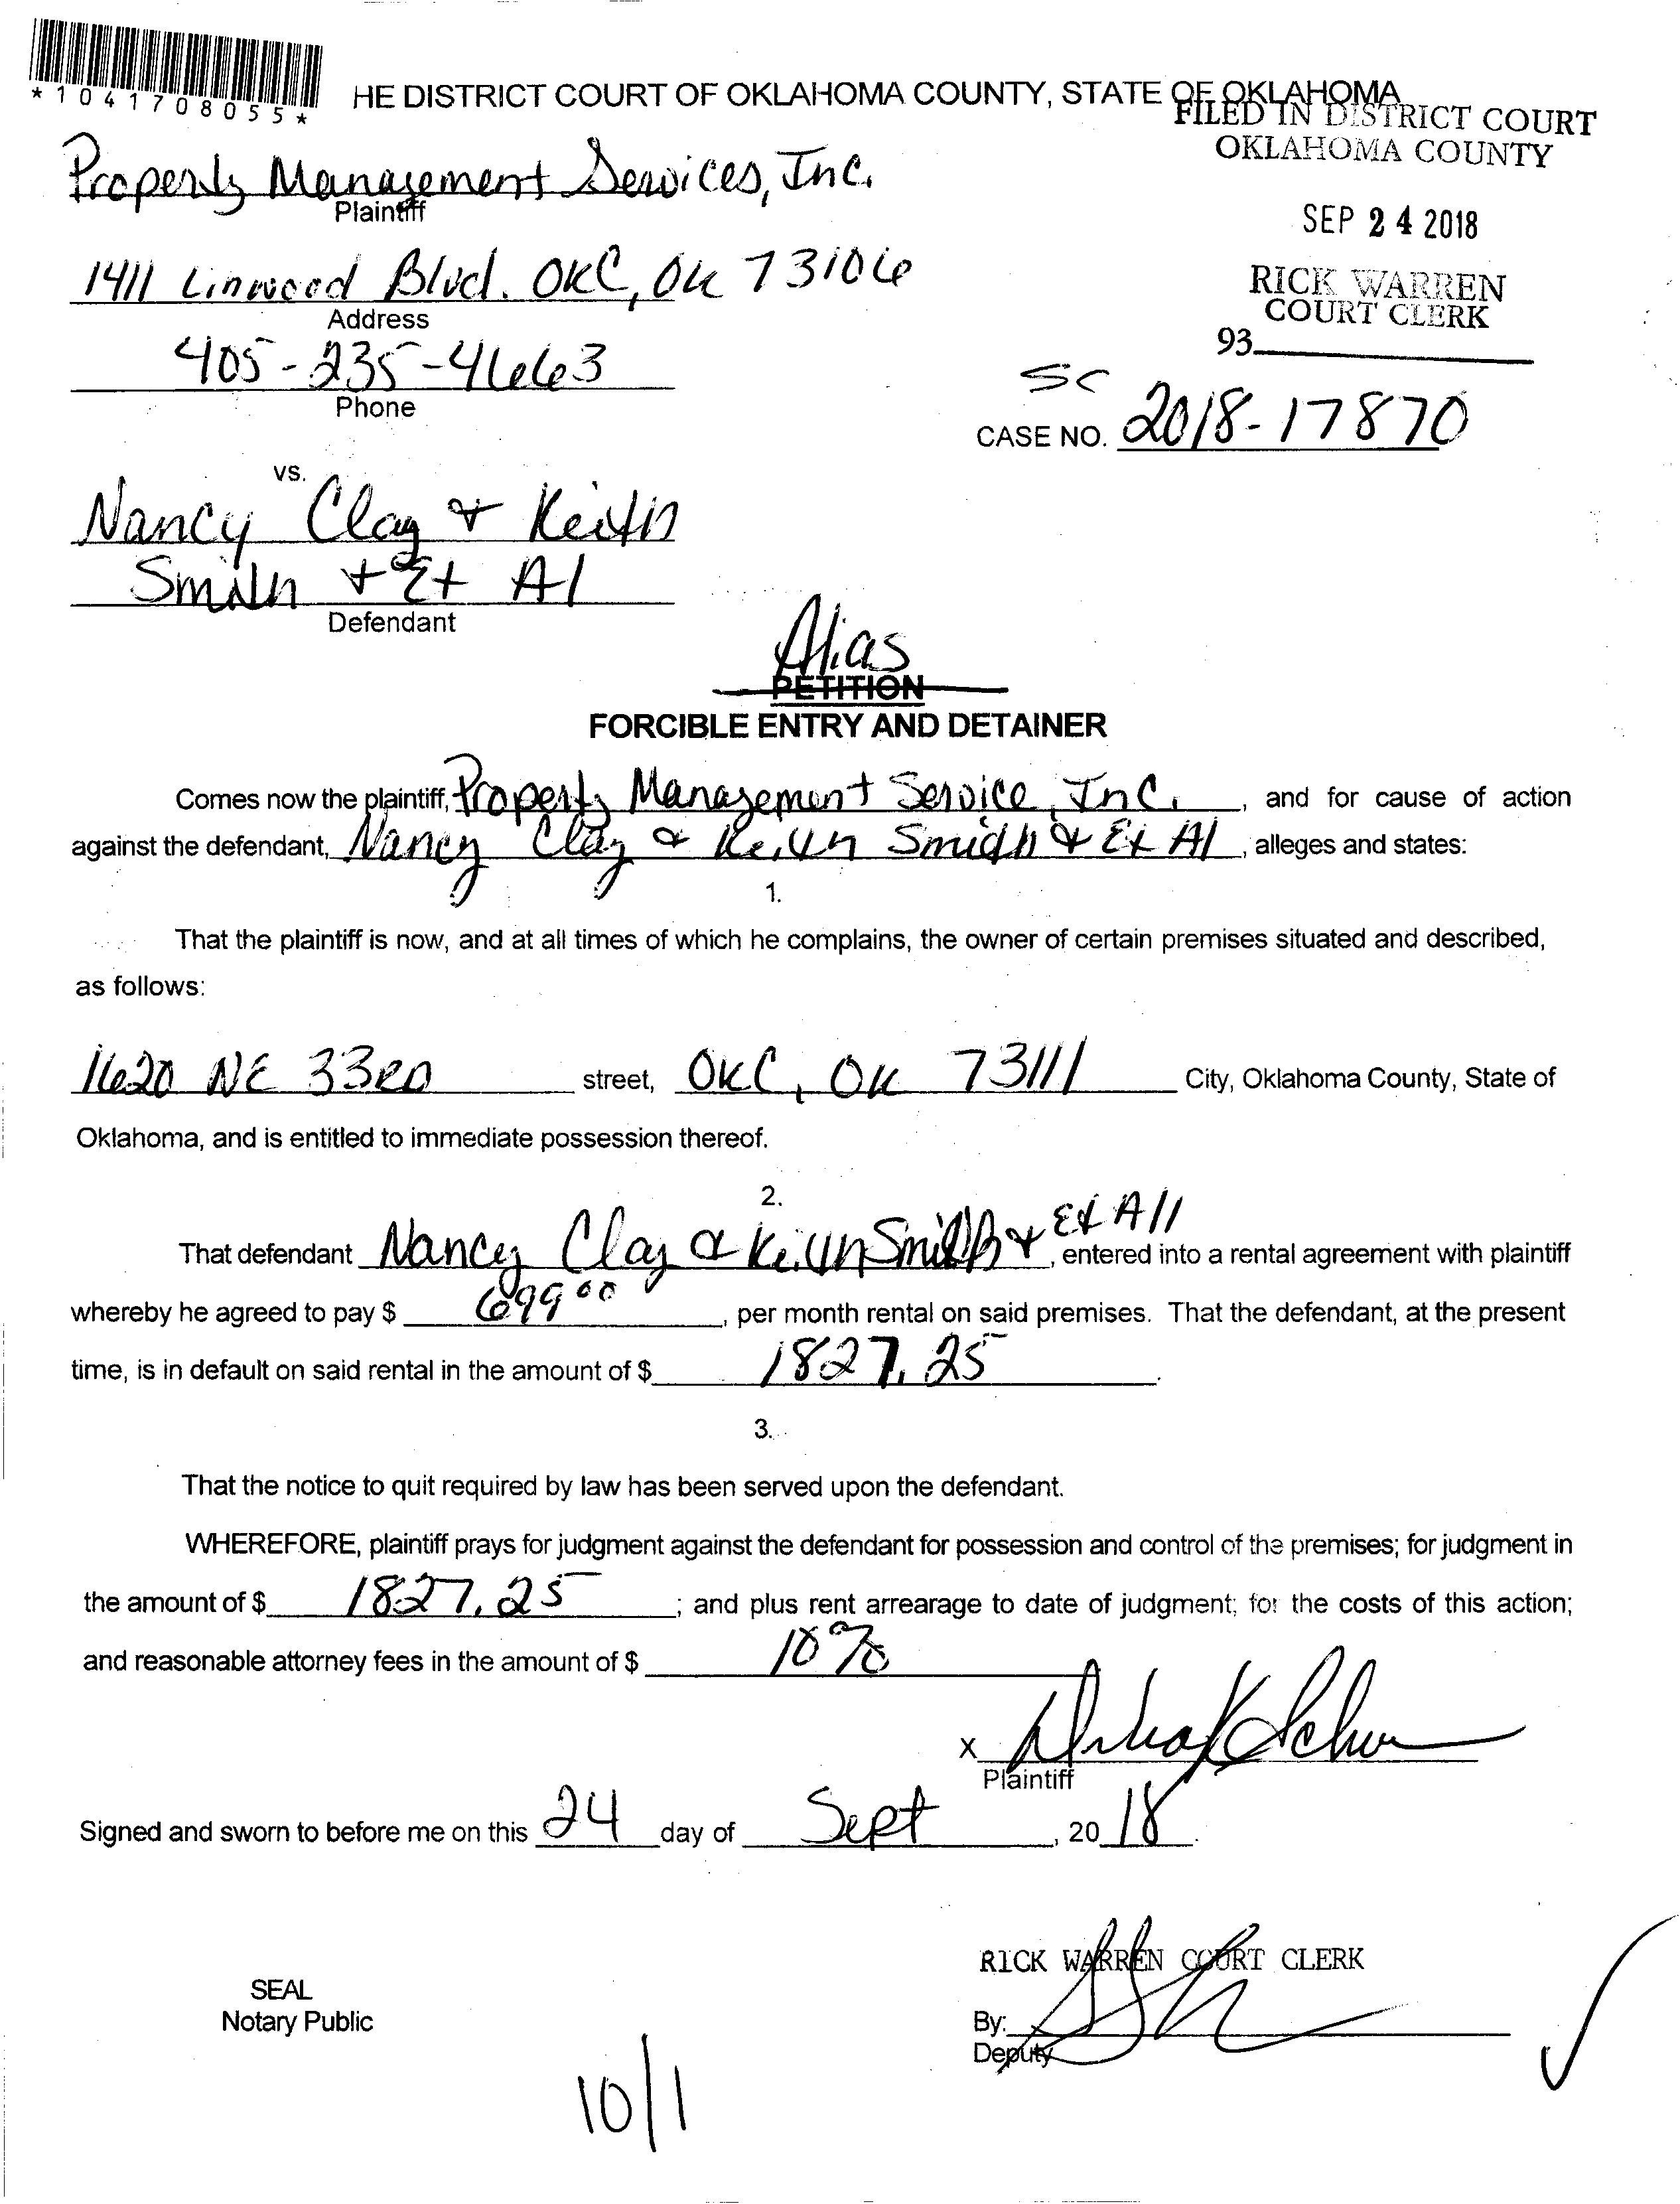 *1041708055*
HE DISTRICT COURT OF OKLAHOMA COUNTY, STATE OF OKLAHOMA
FILED IN DISTRICT COURT
OKLAHOMA COUNTY
Property Management Services, Inc.
Plaintiff
SEP 24 2018
1411 Linwood Blvd. OKC, OK 73106
Address
RICK WARREN
COURT CLERK
93
405-235-4663
Phone
SC
CASE NO. 2018-17870
vs.
Nancy Clay & Keith
Smith & Et Al
Defendant
Alias
PETITION
FORCIBLE ENTRY AND DETAINER
Comes now the plaintiff, Property Management Service, Inc., and for cause of action
against the defendant, Nancy Clay & Keith Smith & Et Al, alleges and states:
1.
That the plaintiff is now, and at all times of which he complains, the owner of certain premises situated and described,
as follows:
1620 NE 33RD street, OKC, OK 73111 City, Oklahoma County, State of
Oklahoma, and is entitled to immediate possession thereof.
2.
That defendant Nancy Clay & Keith Smith & Et All, entered into a rental agreement with plaintiff
whereby he agreed to pay $ 699 00, per month rental on said premises. That the defendant, at the present
time, is in default on said rental in the amount of $ 1827.25.
3.
That the notice to quit required by law has been served upon the defendant.
WHEREFORE, plaintiff prays for judgment against the defendant for possession and control of the premises; for judgment in
the amount of $ 1827.25; and plus rent arrearage to date of judgment; for the costs of this action;
and reasonable attorney fees in the amount of $ 10%
X
Plaintiff
Signed and sworn to before me on this 24 day of Sept, 2018.
RICK WARREN COURT CLERK
SEAL
Notary Public
By:
Deputy
10/1